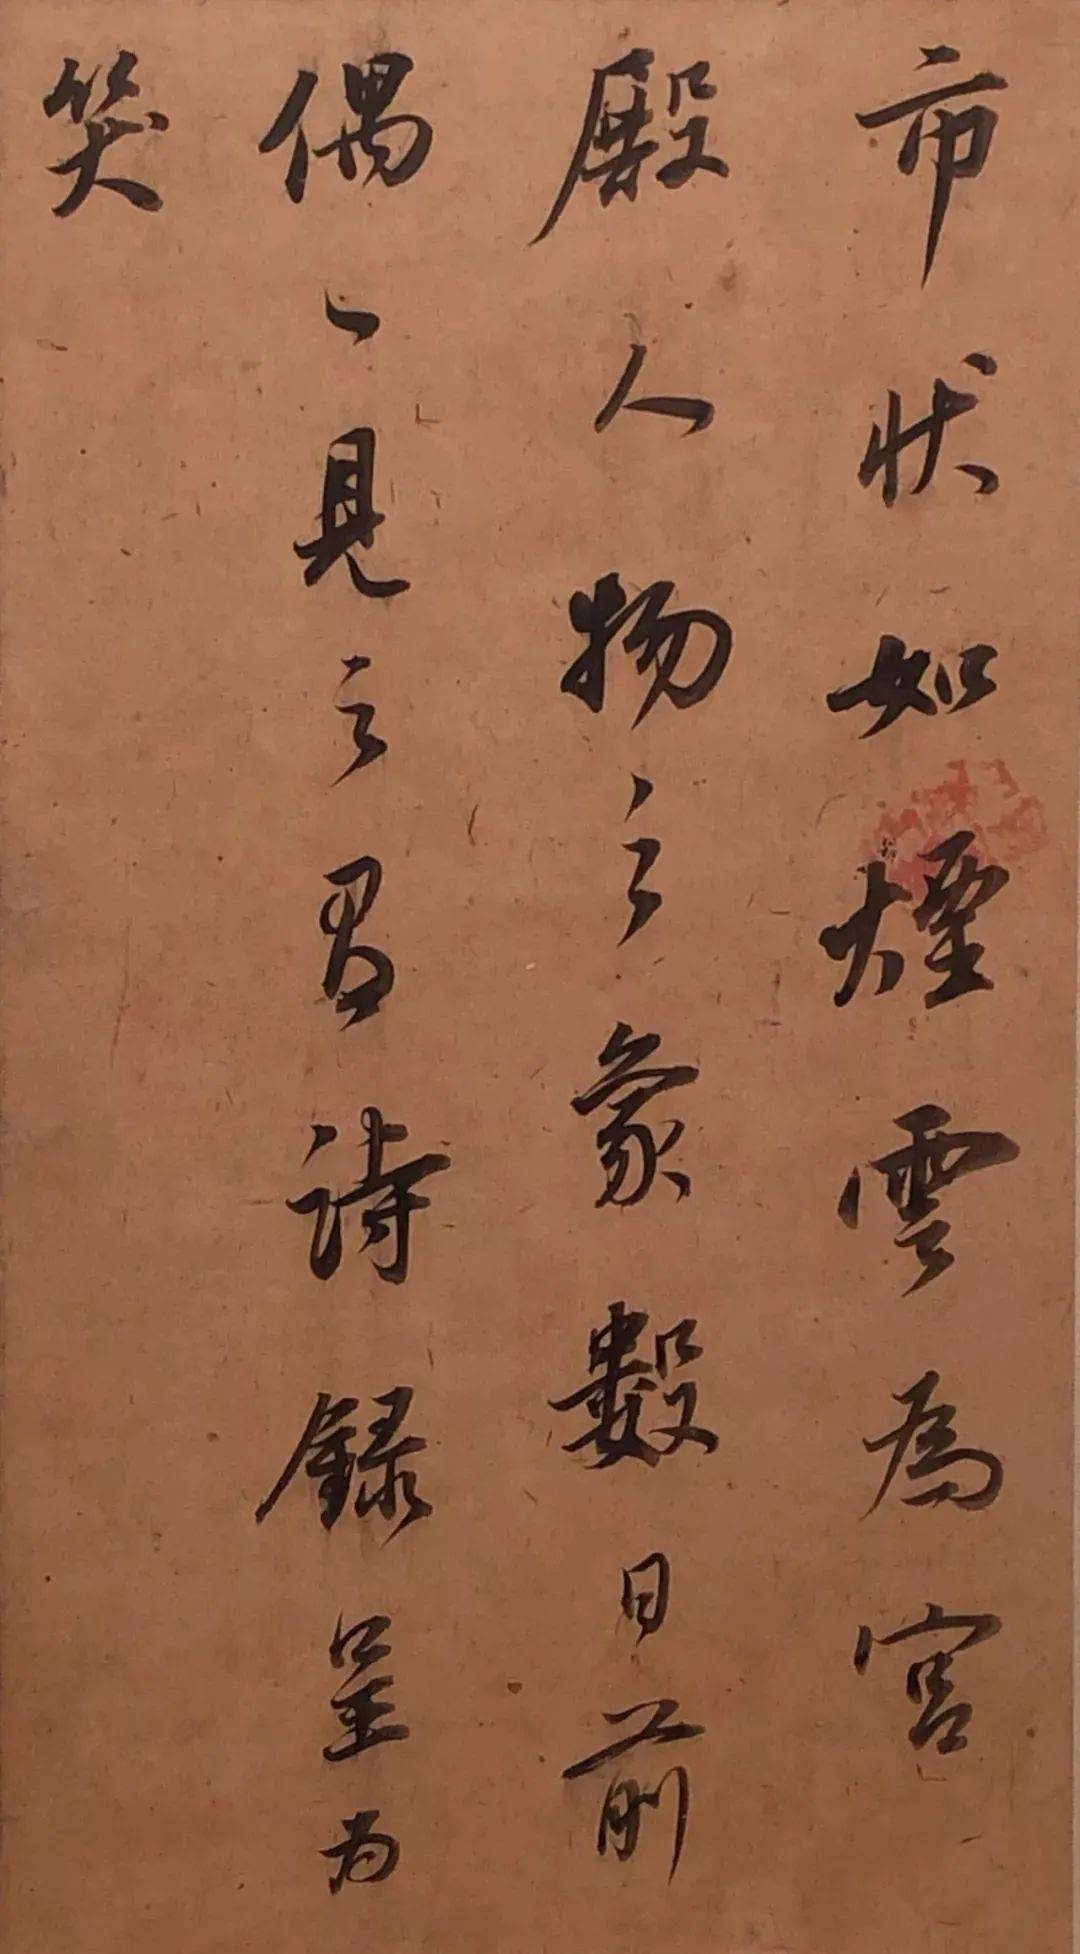 市狀如煙雲為宮
殿人物之象數日前
偶一見之有詩錄呈為
笑